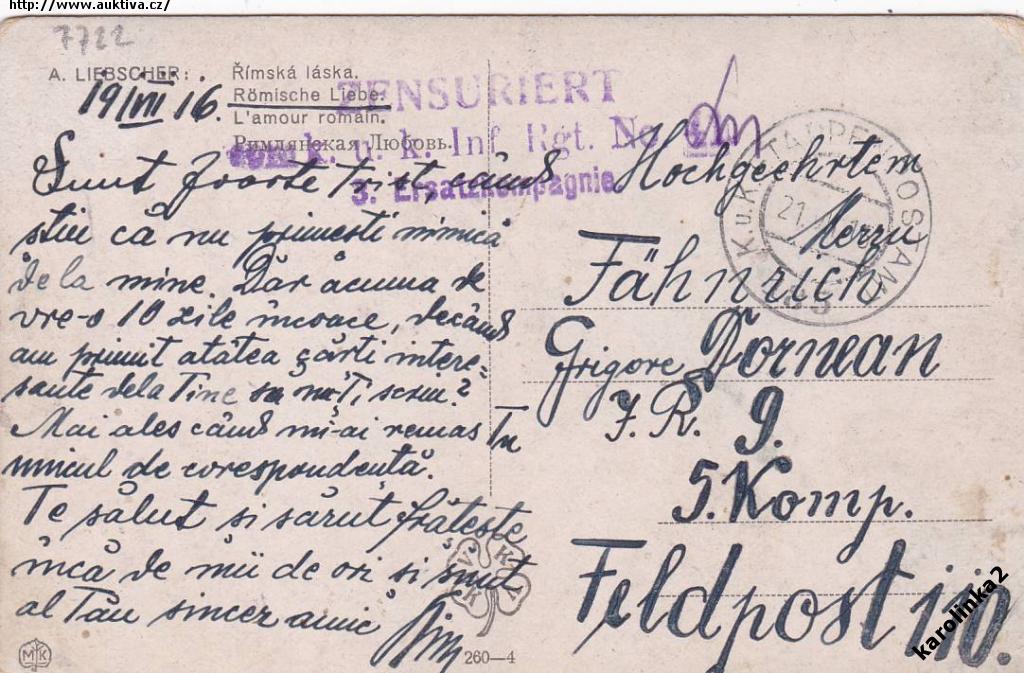 http://www.auktiva.cz/
7722
A. LIEBSCHER: Římská láska.
Römische Liebe.
L'amour romain.
Римлянская Любовь.
19/VII 16.
ZENSURIERT
k. u. k. Inf. Rgt. No
3. Ersatzkompagnie
K. u. K. ETAPPENPOSTAMT
21.
Sunt foarte trist, când
stiu că nu primesti nimică
de la mine. Dar acuma de
vre-o 10 zile încoace, decând
am primit atâtea cărti intere=
sante dela Tine sa nu-Ti scriu?
Mai ales când mi-ai remas Tu
unicul de corespondentă.
Te sălut si sărut frăteste
încă de mii de ori si sunt
al Tău sincer amic
Hochgeehrtem
Herrn
Fähnrich
Grigore Dornean
J. R. 9.
5. Komp.
Feldpost 110.
MK
260—4
karolinka2